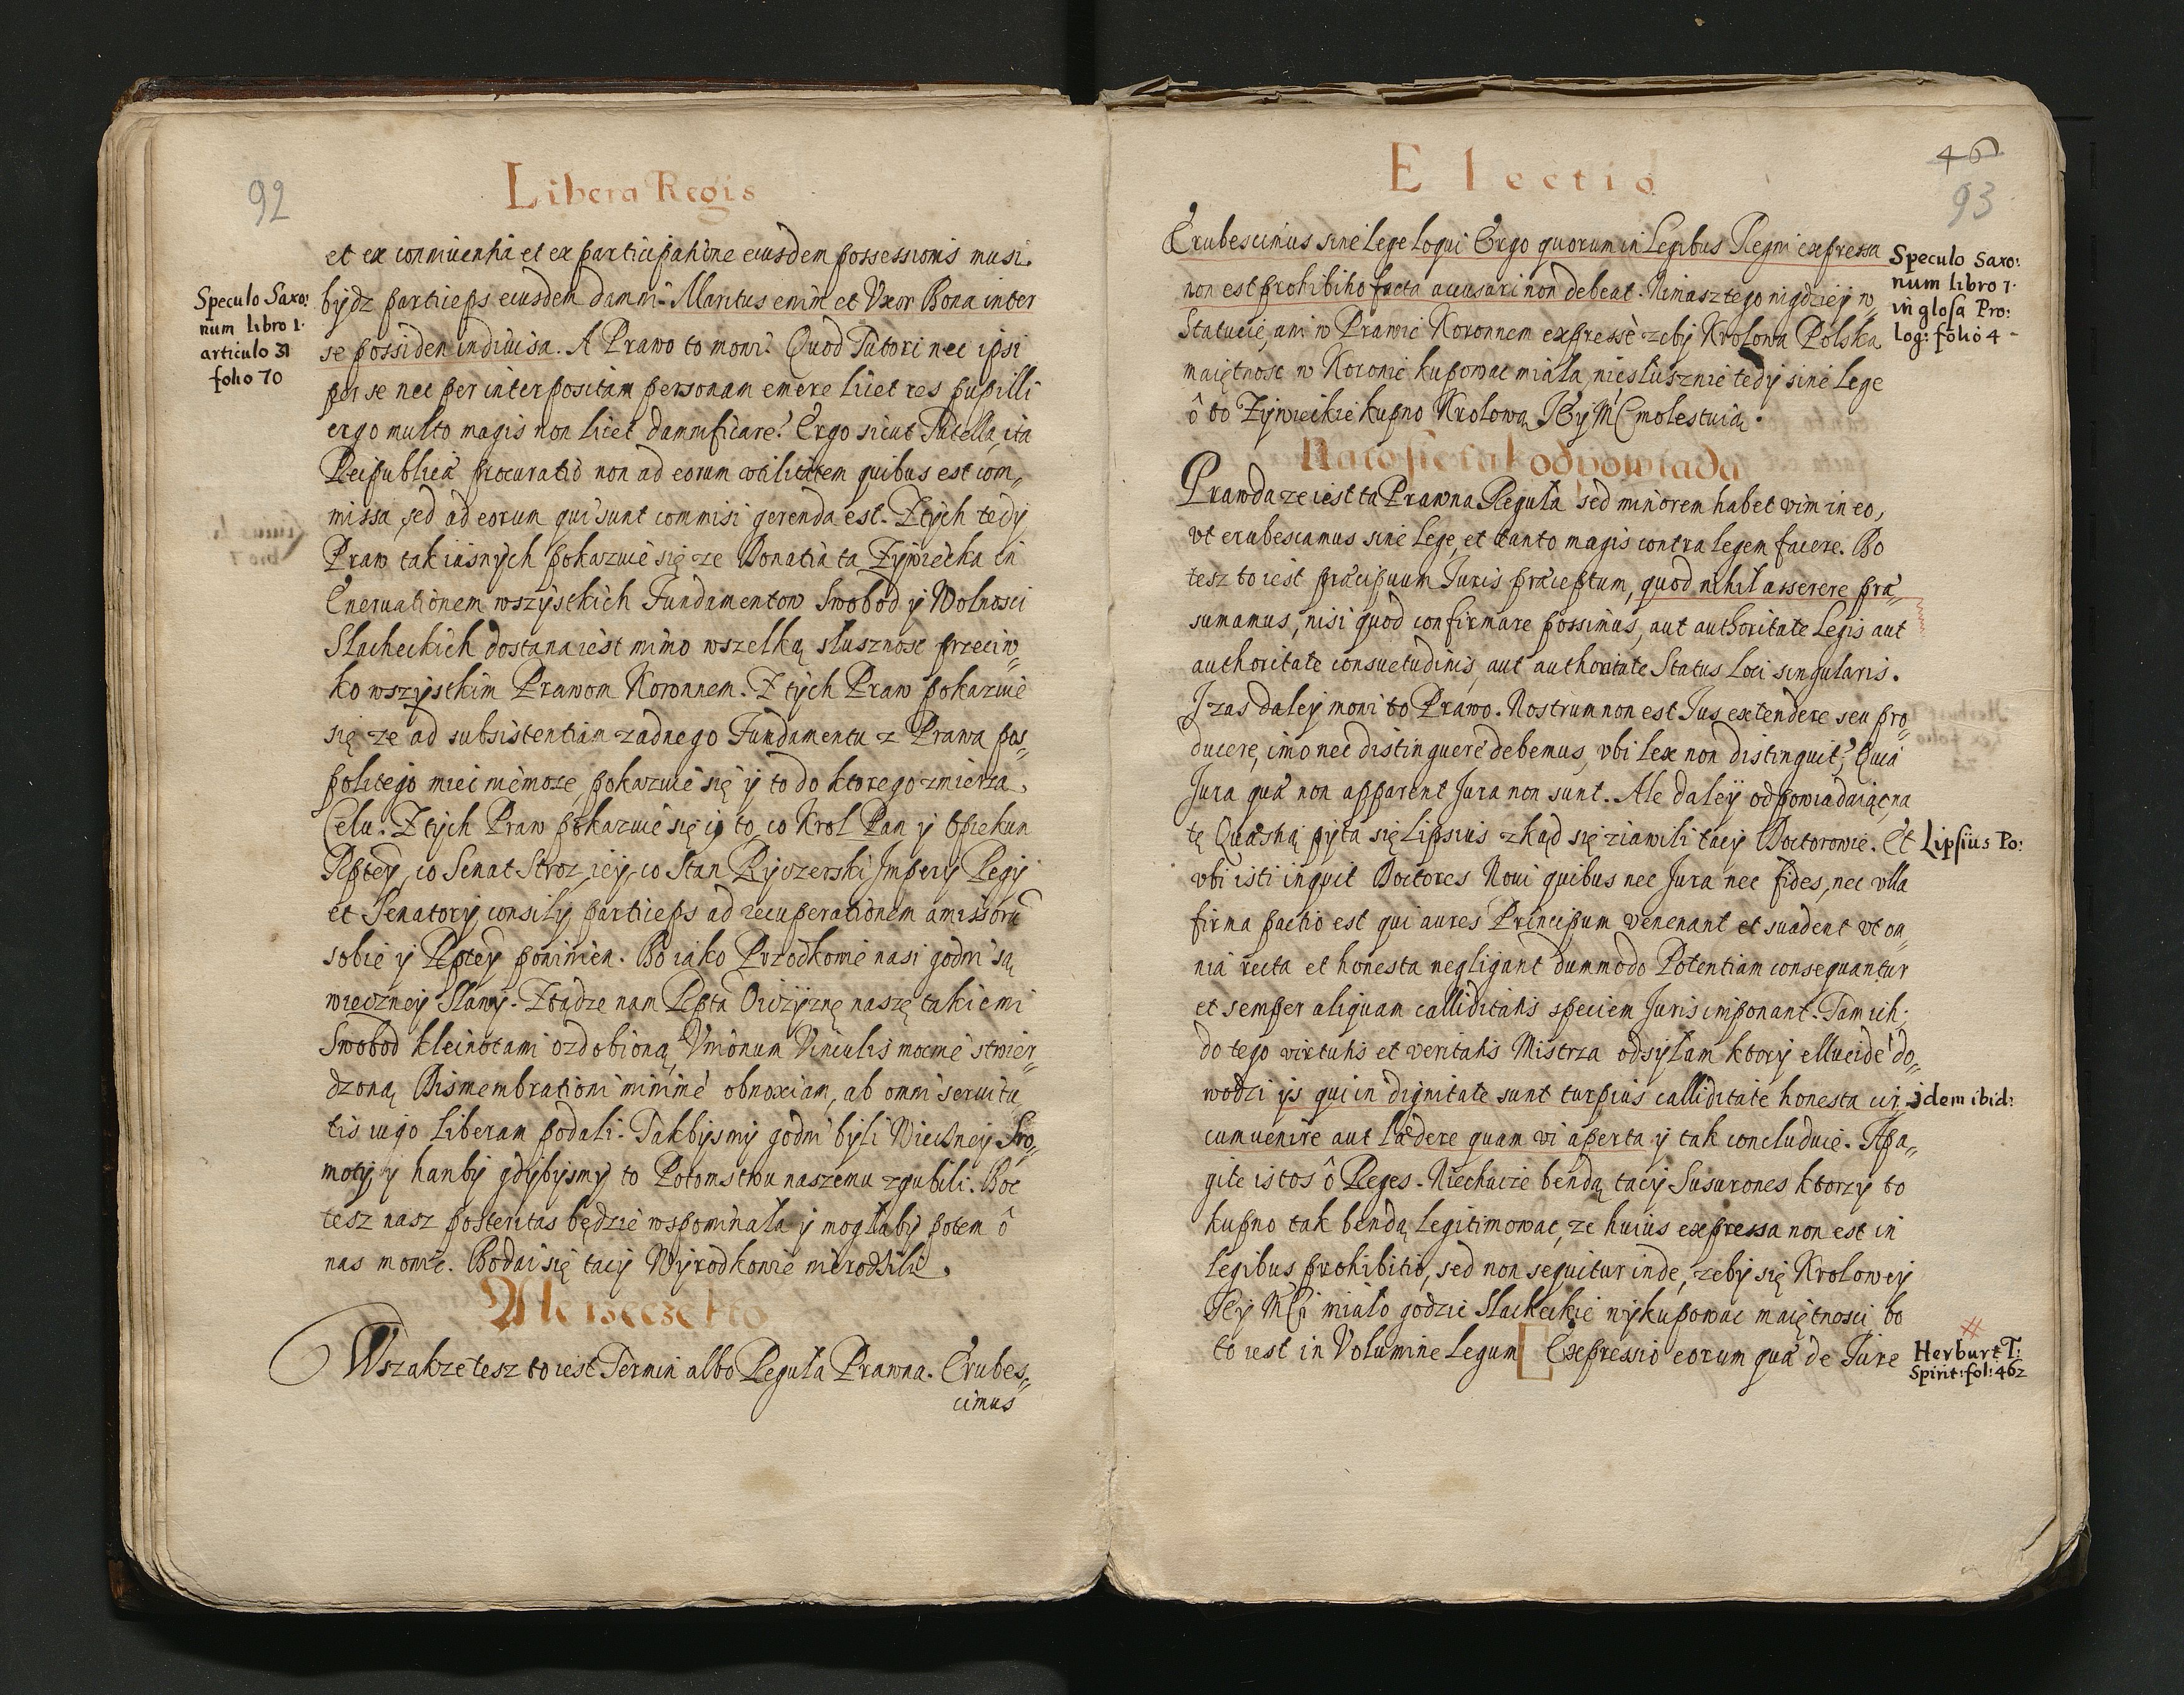 92
Libera Regis
et ex conniuentia et ex participatione eiusdem possessionis musi
bydz particeps eiusdem damni. Maritus enim et Vxor Bona inter
se possident indiuisa. A Prawo to mowi. Quod Tutori nec ipsi
per se nec per interpositam personam emere licet res pupilli
ergo multo magis non licet damnificare. Ergo sicut Tutella, ita
Reipublicæ procuratio non ad eorum vtilitatem quibus est com„
missa, sed ad eorum qui sunt commisi gerenda est. Z tych tedy
Praw tak iasnych pokazuie się ze Donatia ta Zywiecka in
Eneruationem wszystkich Fundamentow Swobod y Wolnosci
Slacheckich dostana iest mimo wszelką slusznosc przeciw„
ko wszystkim Prawom Koronnem. Z tych Praw pokazuie
się ze ad subsistentiam zadnego Fundamentu z Prawa pos„
politego miec niemoze, pokazuie się y to do ktorego zmierza
Celu. Z tych Praw pokazuie się y to, co Krol Pan y Opiekun
Rptey, co Senat Stroz iey, co Stan Ryczerski Impery Regy
et Senatory consily particeps ad recuperationem amissorū
sobie y Rptey powinien. Bo iako Przodkowie nasi godni są
wieczney Slawy. Ztądze nam Rpta Oiczyznę naszę takiemi
Swobod kleinotami ozdobioną, Vnionum Vinculis mocnie stwier„
dzoną Dismembrationi minimé obnoxiam, ab omni seruitu
tis iugo liberam podali. Takbysmy godni byli Wieczney Sro„
moty y hanby gdybysmy to Potomstwu naszemu zgubili. Boc
tesz nasz posteritas będzie wspominała y mogłaby potem ô
nas mowic. Bodai się tacy Wyrodkowie nierodzili.
Ale rzecze kto
Wszakze tesz to iest Termin albo Reguła Prawna. Erubes„
cimus
Speculo Saxo:
num libro 1.
articulo 31
folio 70
46
93
Electio
Erubescimus sine lege loqui Ergo quorum in Legibus Regni expressa
non est prohibitio facta accusari non debeat. Niniasz tego nigdziey w
Statucie, ani w Prawie Koronnem expressè zeby Krolowa Polska
maiętnosc w Koronie kupowac miała, nieslusznie tedy sine Lege
ô to Zywieckie kupno Krolową JEy MC molestuią.
Na to sie tak odpowiada
Prawda ze iest ta Prawna Reguła sed minorem habet vim in eo,
vt erubescamus sine Lege, et tanto magis contra legem facere. Bo
tesz to iest præcipuum Juris præceptum, quod nihil asserere præ„
sumamus, nisi quod confirmare possimus, aut authoritate Legis aut
authoritate consuetudinis, aut authoritate Status Loci singularis.
J zas daley mowi to Prawo. Nostrum non est Jus extendere seu pro„
ducere, imo nec distinguere debemus, vbi lex non distinguit, Quia
Jura quæ non apparent Jura non sunt. Ale daley odpowiadaiąc na
tę Quæstią pyta się Lipsius zkąd się ziawili tacy Doctorowie. Et
vbi isti inquit Doctores Noui quibus nec Jura nec fides, nec vlla
firma pactio est qui aures Principum venenant et suadent vt om„
nia recta et honesta negligant dummodo Potentiam consequantur
et semper aliquam calliditatis speciem Juris imponant. Tam ich
do tego virtutis et veritatis Mistrza odsyłam ktory ellucide do„
wodzi ys qui in dignitate sunt turpius calliditate honesta cir„
cumuenire aut lædere quam vi aperta y tak concluduie. Apa„
gite istos ô Reges. Niechaize bendą tacy Susurones ktorzy to
kupno tak bendą legitimowac, ze huius expressa non est in
legibus prohibitio, sed non sequitur inde, zeby się Krolowey
JEy MCi miało godzic Slacheckie wykupowac maiętnosci bo
to iest in Volumine Legum [Expressio eorum quæ de Jure
Speculo Saxo:
num libro 1.
in glosa Pro:
log: folio 4
Lipsius Po:
idem ibid:
Herburt T:
Spirit: fol: 462